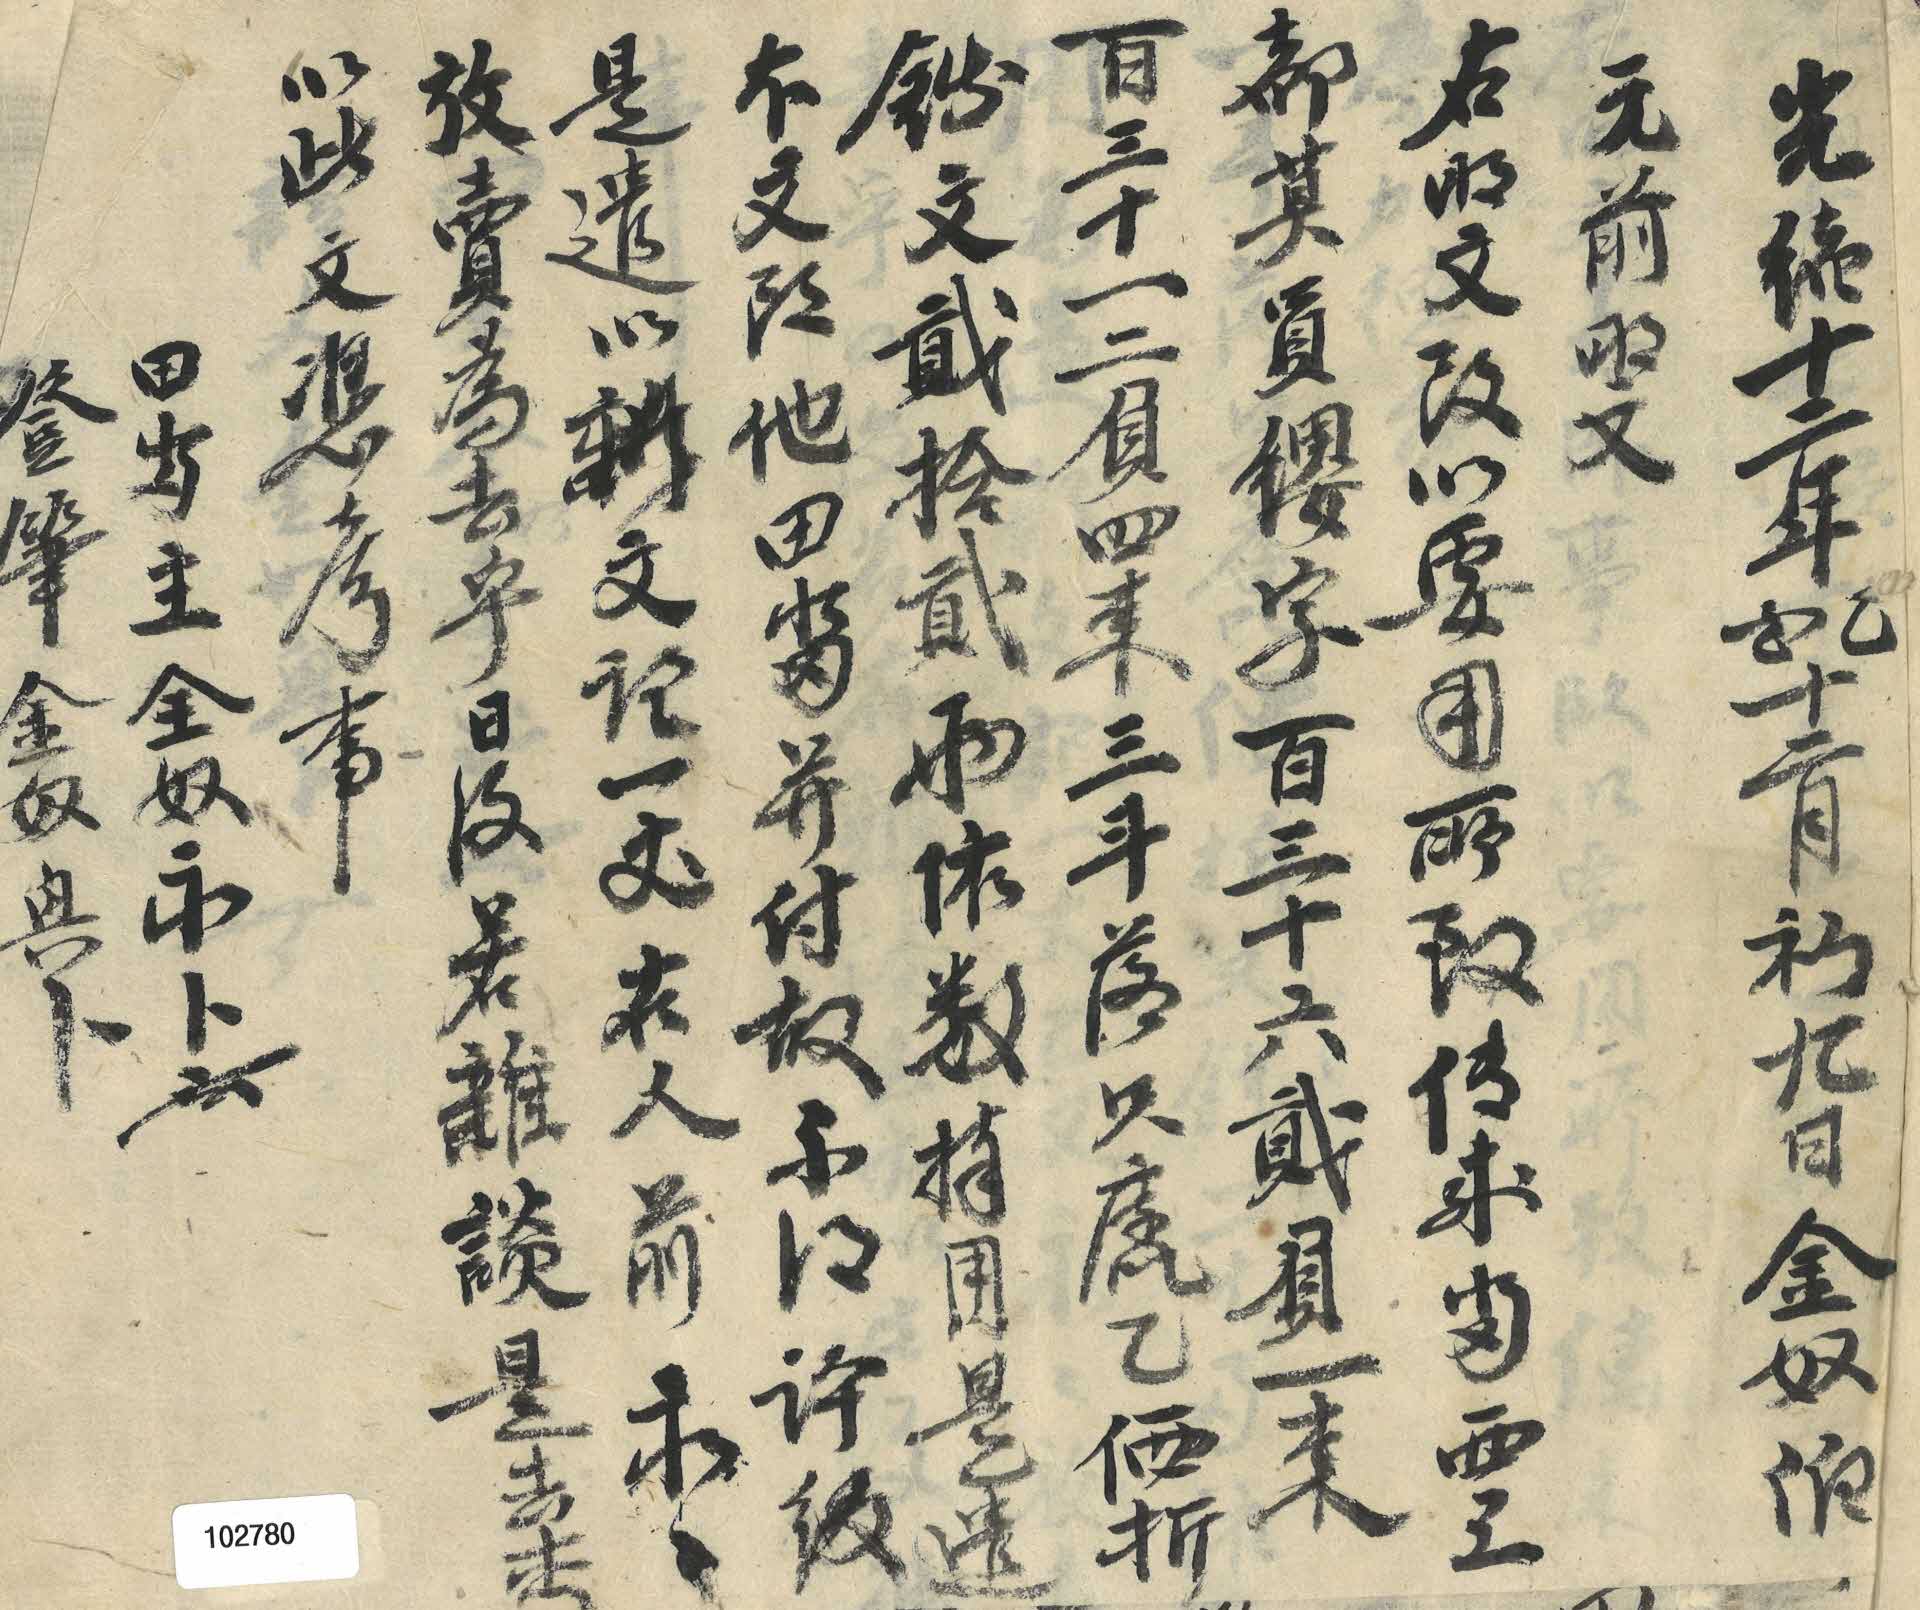 光緖十二年乙酉十二月初九日金奴伯
元前明文
右明文段以要用所致傳來畓西工
部莫員纓字百三十六貳負一束
百三十一二負四束三斗落只庫乙価折
錢文貳拾貳兩依數捧用是遣
本文段他田畓并付故不得許給
是遣以新文記一丈右人前永〻
放賣爲去乎日後若雜談是去等
以此文憑考事
田畓主金奴永卜
證筆金奴興卜
102780